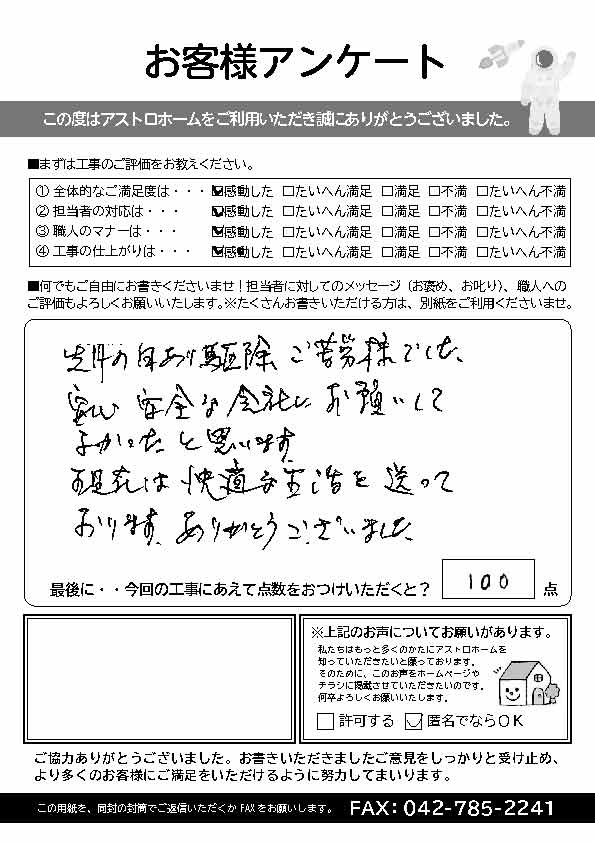 お客様アンケート
この度はアストロホームをご利用いただき誠にありがとうございました。
■まずは工事のご評価をお教えください。
① 全体的なご満足度は・・・ ☑感動した □たいへん満足 □満足 □不満 □たいへん不満
② 担当者の対応は・・・ ☑感動した □たいへん満足 □満足 □不満 □たいへん不満
③ 職人のマナーは・・・ ☑感動した □たいへん満足 □満足 □不満 □たいへん不満
④ 工事の仕上がりは・・・ ☑感動した □たいへん満足 □満足 □不満 □たいへん不満
■何でもご自由にお書きくださいませ！担当者に対してのメッセージ（お褒め、お叱り）、職人への
ご評価もよろしくお願いいたします。※たくさんお書きいただける方は、別紙をご利用くださいませ。
先件の白あり駆除、ご苦労様でした。
安心 安全な会社に お願いして
よかったと思います。
現在は 快適な生活を 送って
おります。ありがとうございました。
最後に・・今回の工事にあえて点数をおつけいただくと？ 100 点
※上記のお声についてお願いがあります。
私たちはもっと多くのかたにアストロホームを
知っていただきたいと願っております。
そのために、このお声をホームページや
チラシに掲載させていただきたいのです。
何卒よろしくお願いいたします。
□ 許可する ☑ 匿名でならＯＫ
ご協力ありがとうございました。お書きいただきましたご意見をしっかりと受け止め、
より多くのお客様にご満足をいただけるように努力してまいります。
この用紙を、同封の封筒でご返信いただくか FAX をお願いします。 FAX：042-785-2241